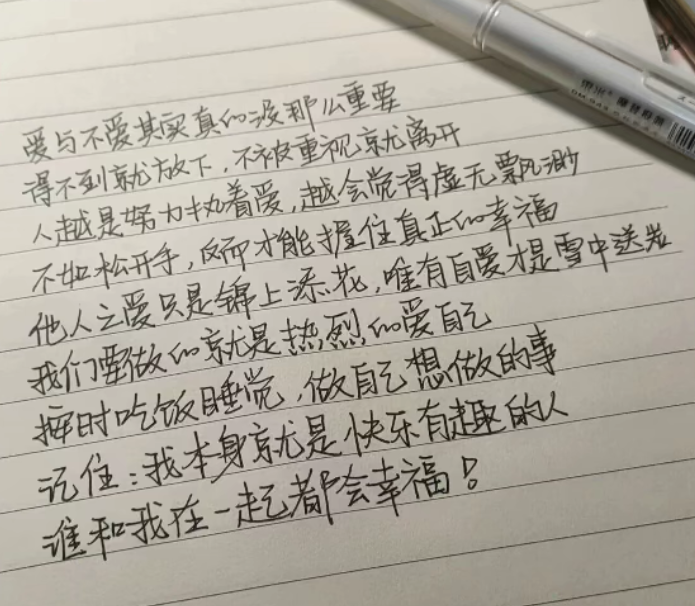 爱与不爱其实真的没那么重要
得不到就放下，不被重视就离开
人越是努力执着爱，越会觉得虚无飘渺
不如松开手，反而才能握住真正的幸福
他人之爱只是锦上添花，唯有自爱才是雪中送炭
我们要做的就是热烈的爱自己
按时吃饭睡觉，做自己想做的事
记住：我本身就是快乐有趣的人
谁和我在一起都会幸福！